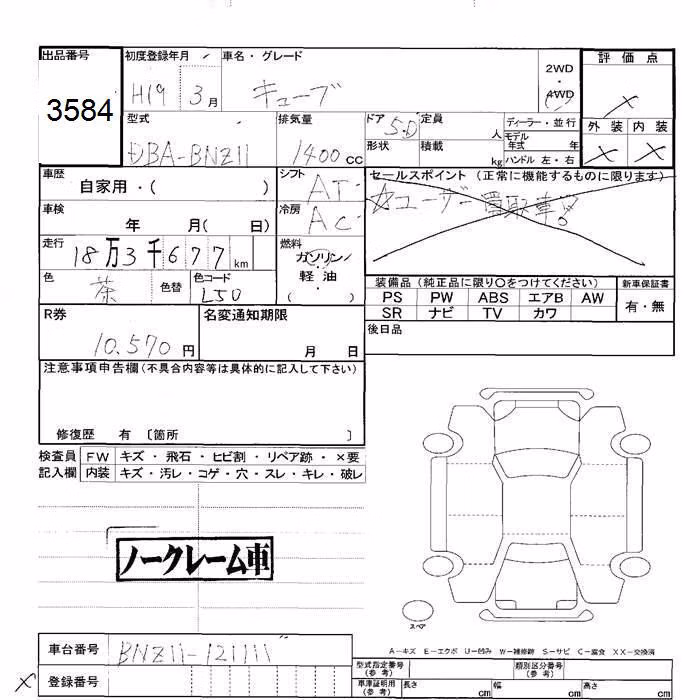 出品番号
3584
初度登録年月
H19 3月
車名・グレード
キューブ
2WD
・
4WD
評価点
×
外装 内装
× ×
型式
DBA-BNZ11
排気量
1400 cc
ドア 5.D
形状
定員
人
積載
kg
ディーラー・並行
モデル年式 年
ハンドル 左・右
車歴
自家用・( )
シフト AT
セールスポイント (正常に機能するものに限ります)
☆ユーザー買取車!!
車検
年 月( 日)
冷房 AC
走行
18万3千677km
燃料
ガソリン
・
軽油
( )
色
茶
色替
色コード
L50
装備品 (純正品に限り〇をつけてください)
PS PW ABS エアB AW
SR ナビ TV カワ
新車保証書
有・無
後日品
R券
10.570円
名変通知期限
月 日
注意事項申告欄(不具合内容等は具体的に記入して下さい)
修復歴 有 〔箇所 〕
検査員記入欄
FW キズ・飛石・ヒビ割・リペア跡・×要
内装 キズ・汚レ・コゲ・穴・スレ・キレ・破レ
ノークレーム車
スペア
A－キズ E－エクボ U－凹み W－補修跡 S－サビ C－腐食 XX－交換済
車台番号 BNZ11-121111
× 登録番号
型式指定番号(参考)
類別区分番号(参考)
車庫証明用(参考) 長さ cm 幅 cm 高さ cm